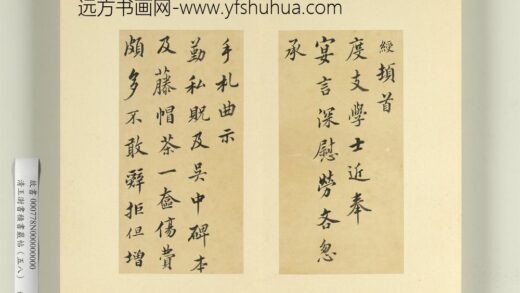 远方书画网-www.yfshuhua.com
綬頓首
度支學士近奉
宴言深慰勞吝忽
承
手札曲示
勤私貺及吳中碑本
及藤帽茶一奩傷費
頗多不敢辭拒但增
故書 000778N000000000
清王澍書積書巖帖(五八)